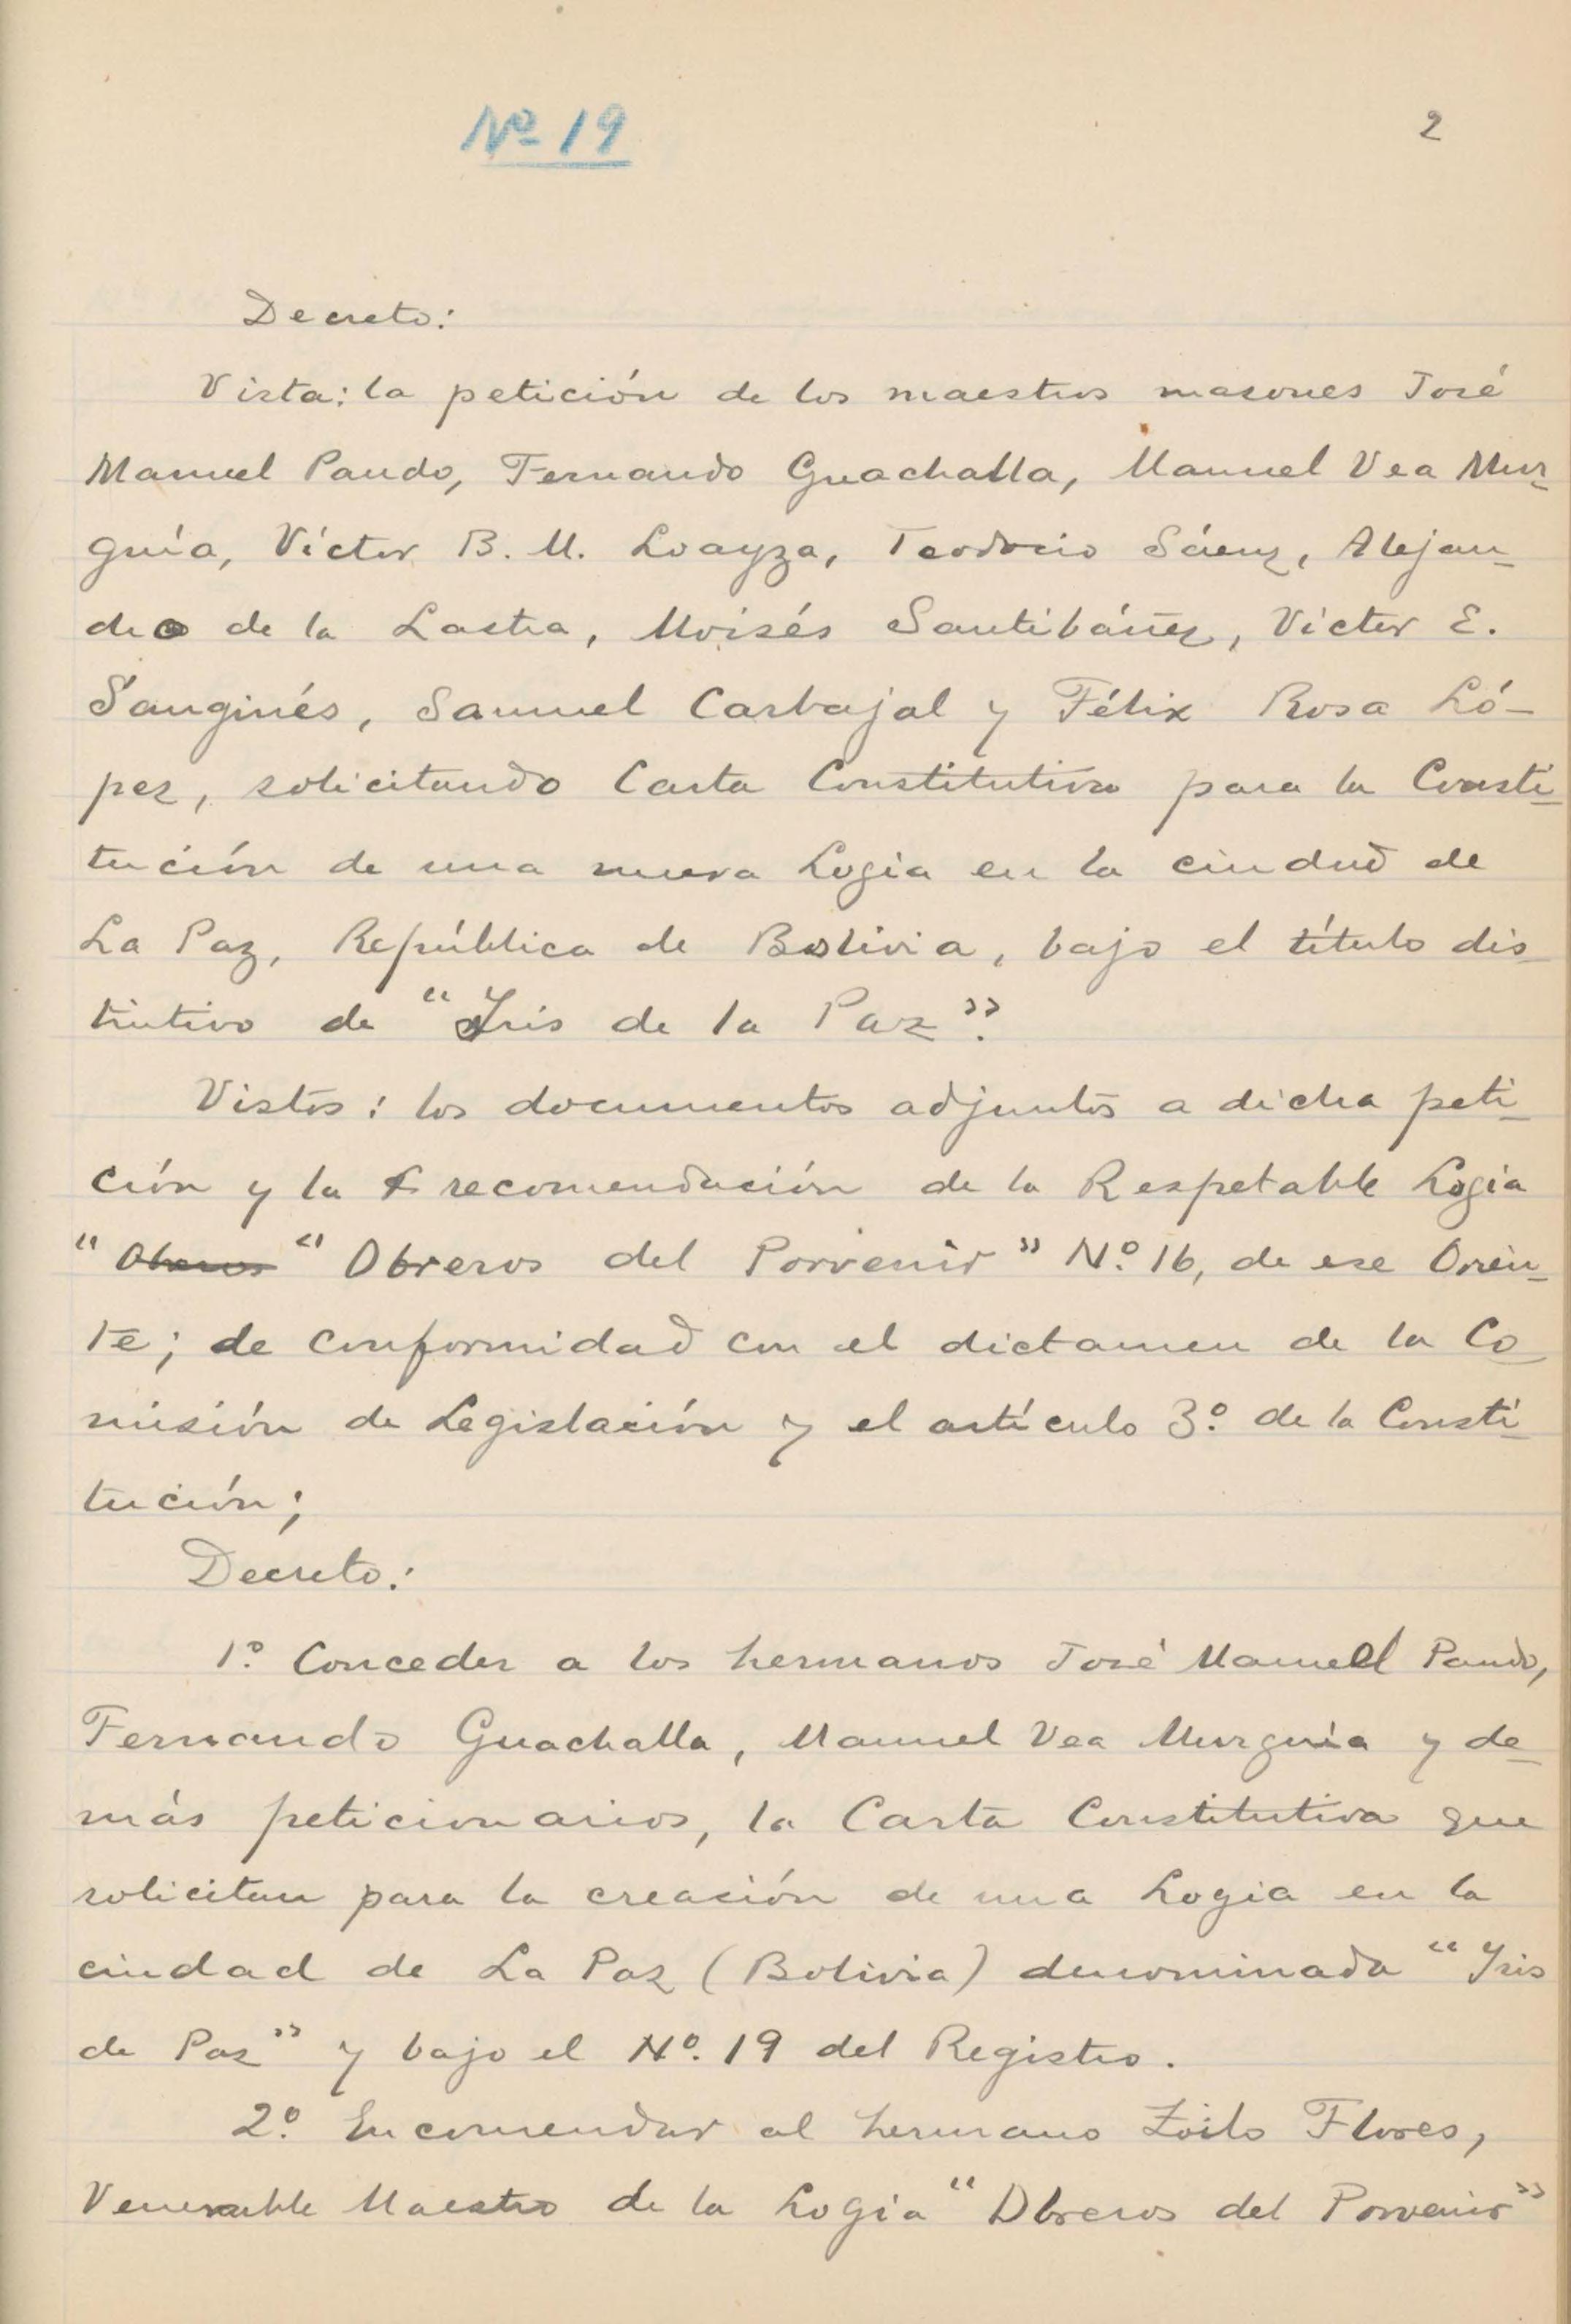 Nº 19
2
Decreto:
Vista: la petición de los maestros masones José
Manuel Pando, Fernando Guachalla, Manuel Vea Mur-
guía, Víctor B. M. Loayza, Teodocio Sáenz, Alejan-
dro de la Lastra, Moisés Santibáñez, Victor E.
Sanginés, Samuel Carbajal y Félix Rosa Ló-
pez, solicitando Carta Constitutiva para la Consti-
tución de una nueva Logia en la ciudad de
La Paz, República de Bolivia, bajo el título dis-
tintivo de "Iris de la Paz".
Vistos: los documentos adjuntos a dicha peti-
ción y la recomendación de la Respetable Logia
" Obreros " Obreros del Porvenir" Nº. 16, de ese Orien-
te; de conformidad con el dictamen de la Co-
misión de Legislación y el artículo 3º. de la Consti-
tución;
Decreto:
1º. Conceder a los hermanos José Manuel Pando,
Fernando Guachalla, Manuel Vea Murguía y de-
más peticionarios, la Carta Constitutiva que
solicitan para la creación de una Logia en la
ciudad de La Paz (Bolivia) denominada "Iris
de Paz" y bajo el Nº. 19 del Registro.
2º. Encomendar al hermano Zoilo Flores,
Venerable Maestro de la Logia "Obreros del Porvenir"